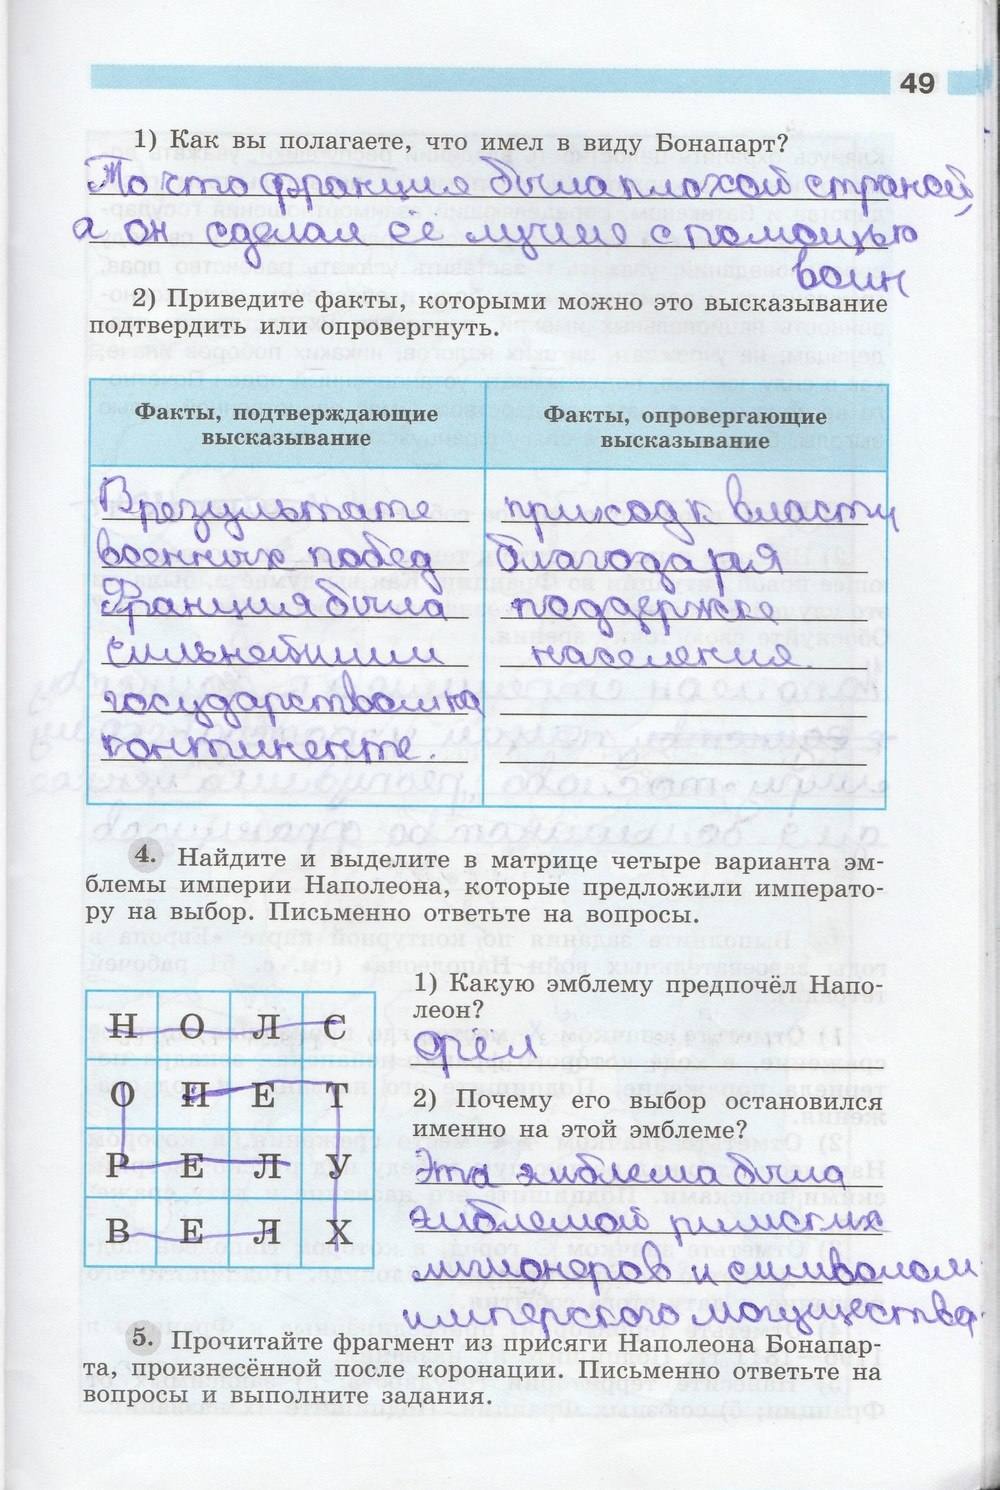 49
1) Как вы полагаете, что имел в виду Бонапарт?
То что франция была плохой страной,
а он сделал её лучше с помощью
войн
2) Приведите факты, которыми можно это высказывание
подтвердить или опровергнуть.
Факты, подтверждающие
высказывание
В результате
военных побед
Франция была
сильнейшим
государством на
континенте.
Факты, опровергающие
высказывание
приход к власти
благодаря
поддержке
населения.
4. Найдите и выделите в матрице четыре варианта эм-
блемы империи Наполеона, которые предложили императо-
ру на выбор. Письменно ответьте на вопросы.
Н О Л С
О Н Е Т
Р Е Л У
В Е Л Х
1) Какую эмблему предпочёл Напо-
леон?
Орёл
2) Почему его выбор остановился
именно на этой эмблеме?
Эта эмблема была
эмблемой римских
легионеров и символом
имперского могущества.
5. Прочитайте фрагмент из присяги Наполеона Бонапар-
та, произнесённой после коронации. Письменно ответьте на
вопросы и выполните задания.